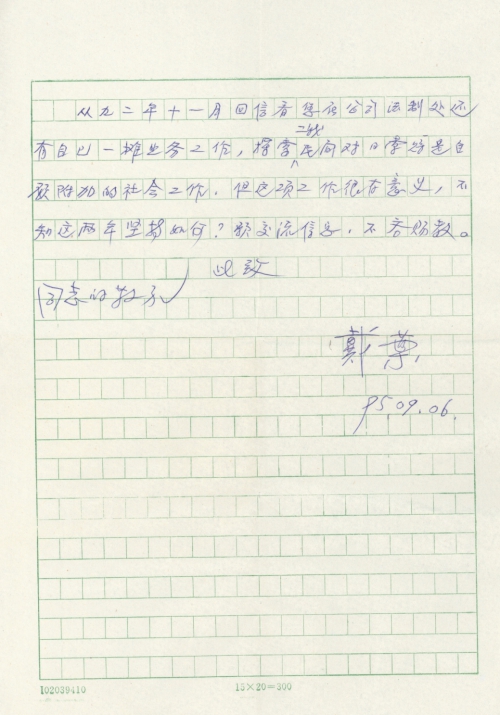 从九二年十一月回信看您在公司法制处还
有自己一摊业务工作，搞二战民间对日索赔是自
愿附加的社会工作。但这项工作很有意义，不
知这两年坚持如何？颇交流信息，不吝赐教。
此致
同志的敬礼
戴
95.09.06.
102039410
15×20=300